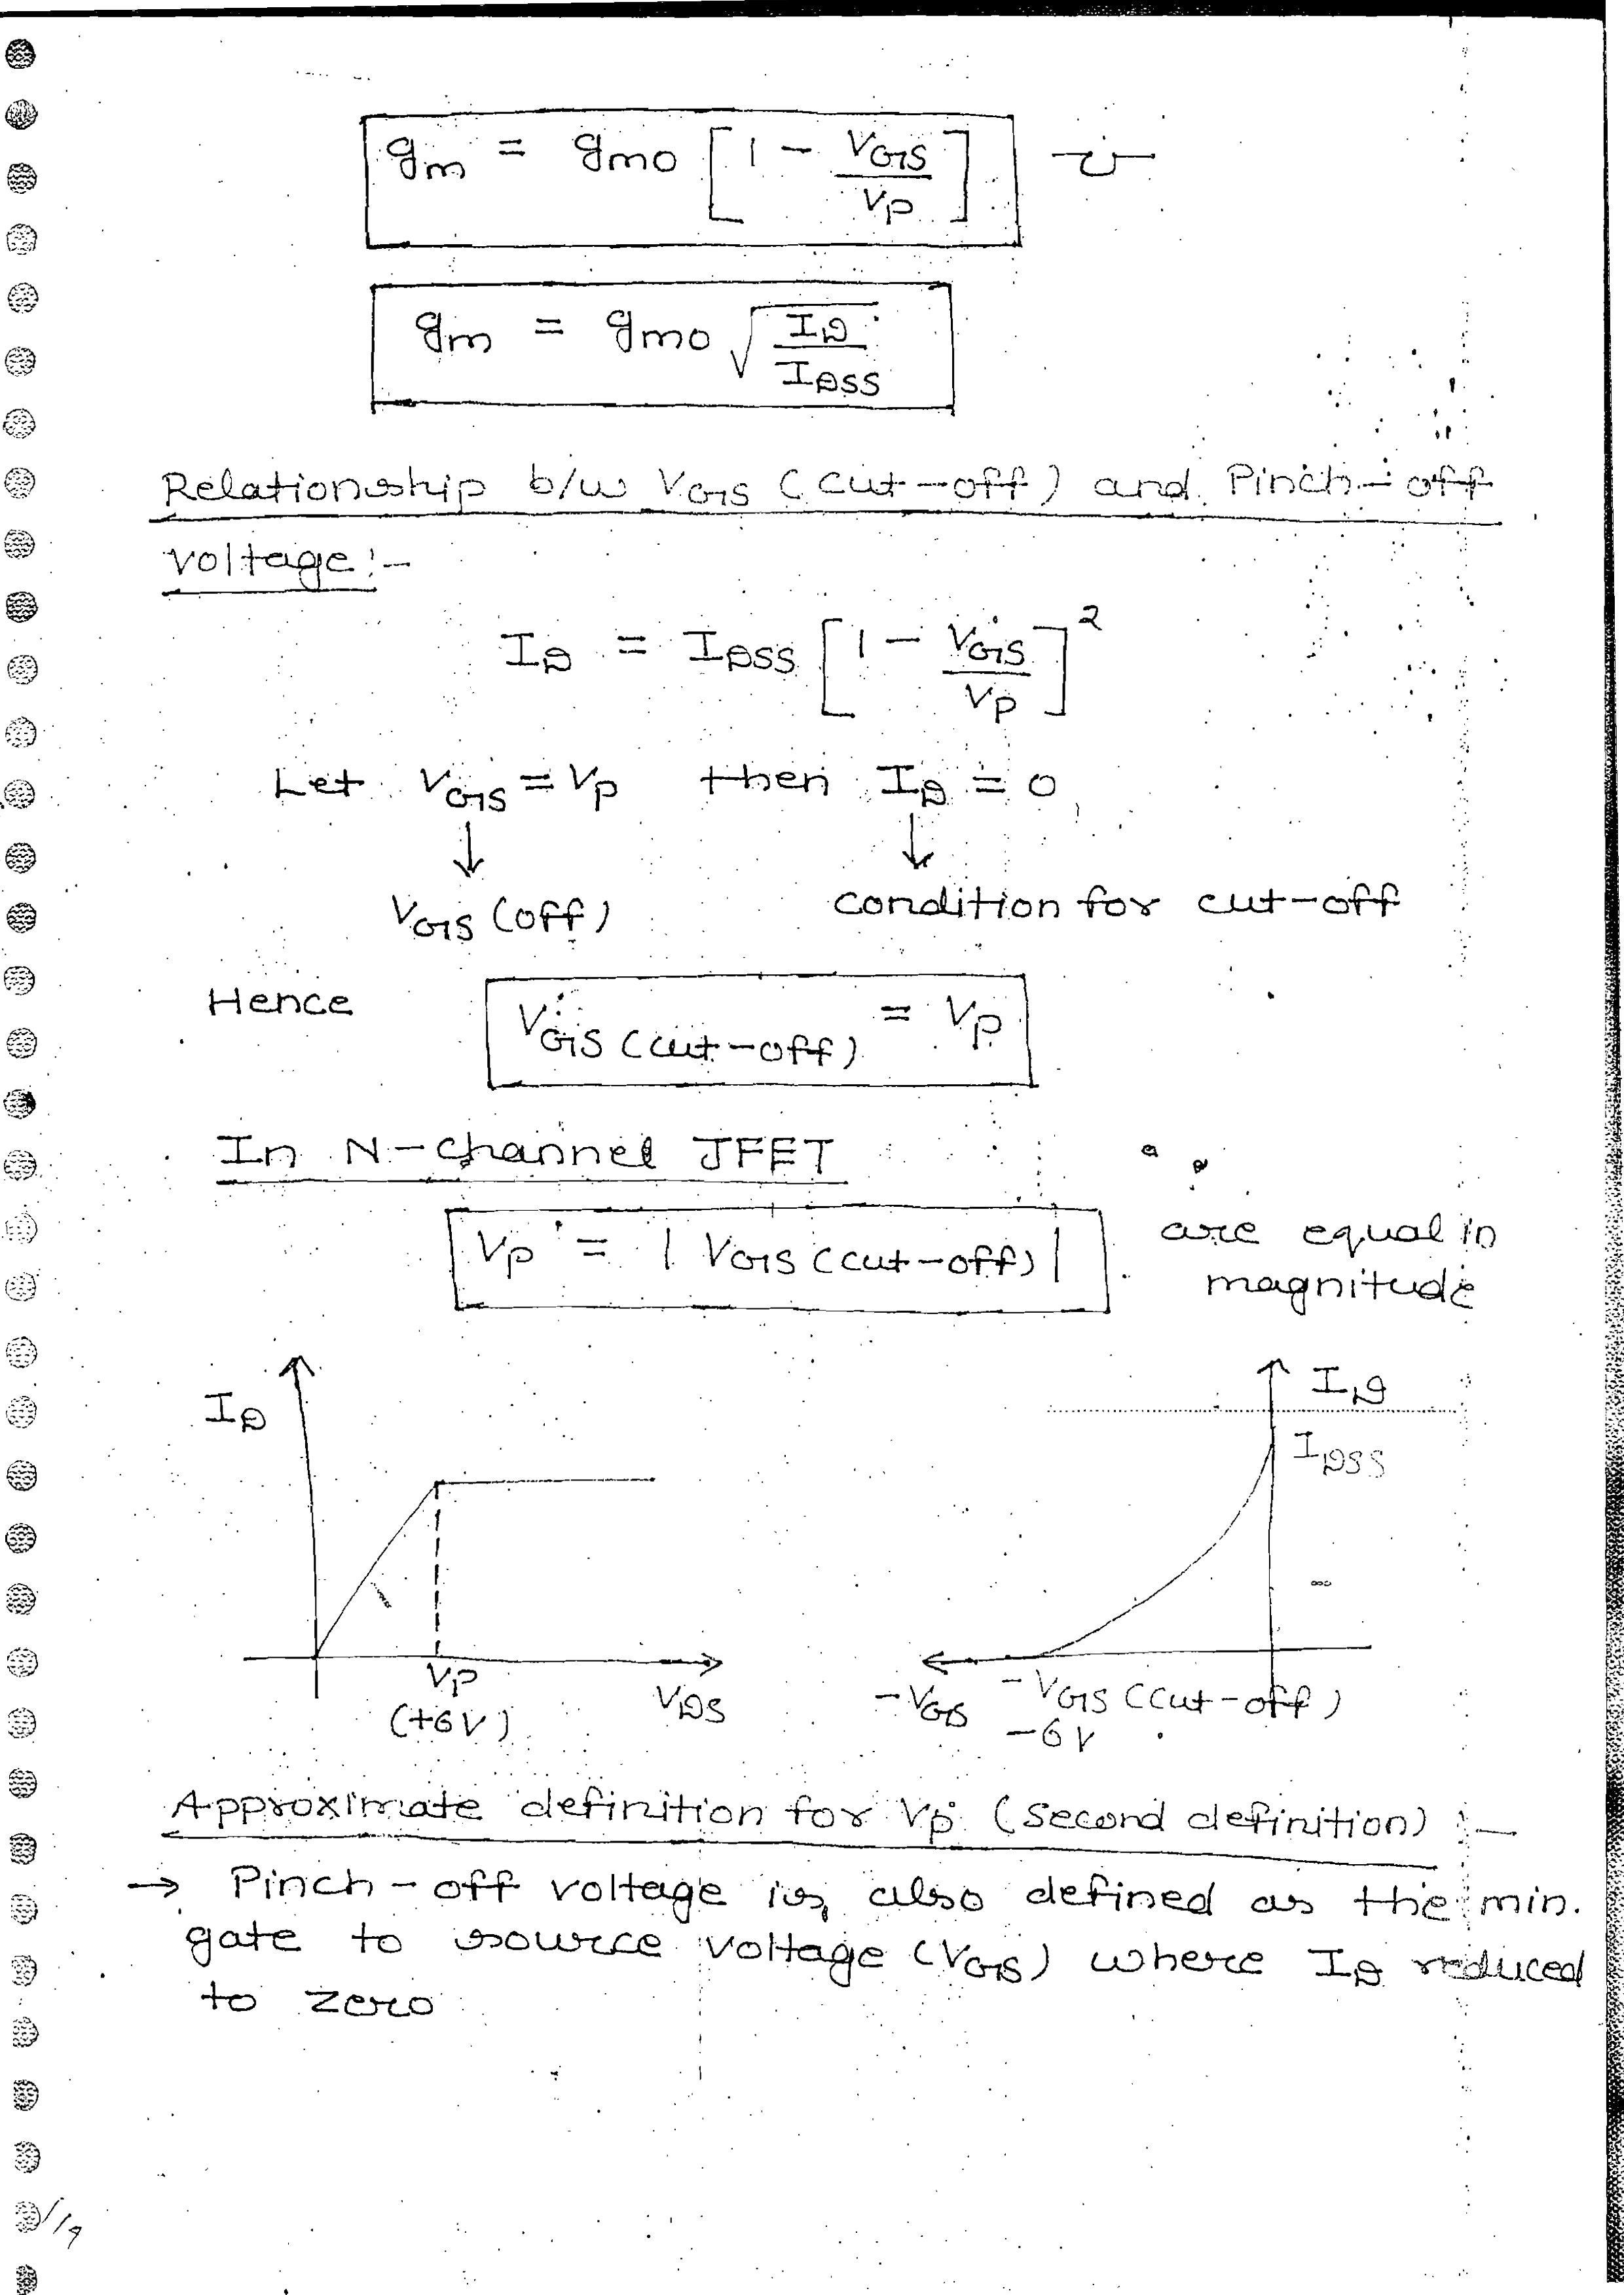 gm = gmo [1 - VGS/VP] -ii-
gm = gmo √(ID/IDSS)
Relationship b/w VGS (cut-off) and Pinch-off
voltage:-
ID = IDSS [1 - VGS/VP]²
Let VGS = VP then ID = 0
↓ ↓
VGS (off) condition for cut-off
Hence VGS (cut-off) = VP
In N-channel JFET
VP = | VGS (cut-off) | are equal in
magnitude
ID
VP
(+6V)
VDS
ID
IDSS
-VGS
-VGS (cut-off)
-6V
Approximate definition for VP (second definition) :-
→ Pinch-off voltage is, also defined as the min.
gate to source voltage (VGS) where ID reduced
to zero